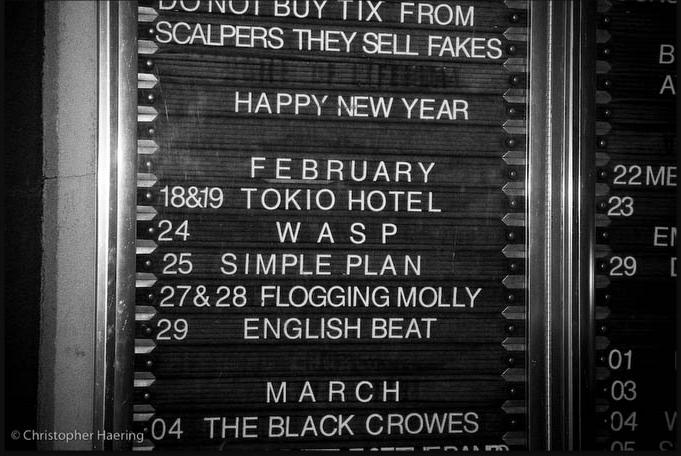 DO NOT BUY TIX FROM
SCALPERS THEY SELL FAKES
HAPPY NEW YEAR
FEBRUARY
18&19 TOKIO HOTEL
24 WASP
25 SIMPLE PLAN
27&28 FLOGGING MOLLY
29 ENGLISH BEAT
MARCH
04 THE BLACK CROWES
22 ME
23
29
01
03
04
05
© Christopher Haering